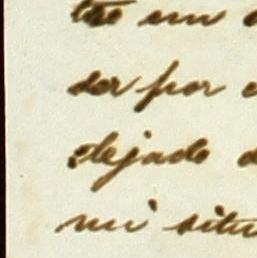 em
ser por
dejado
mi situ